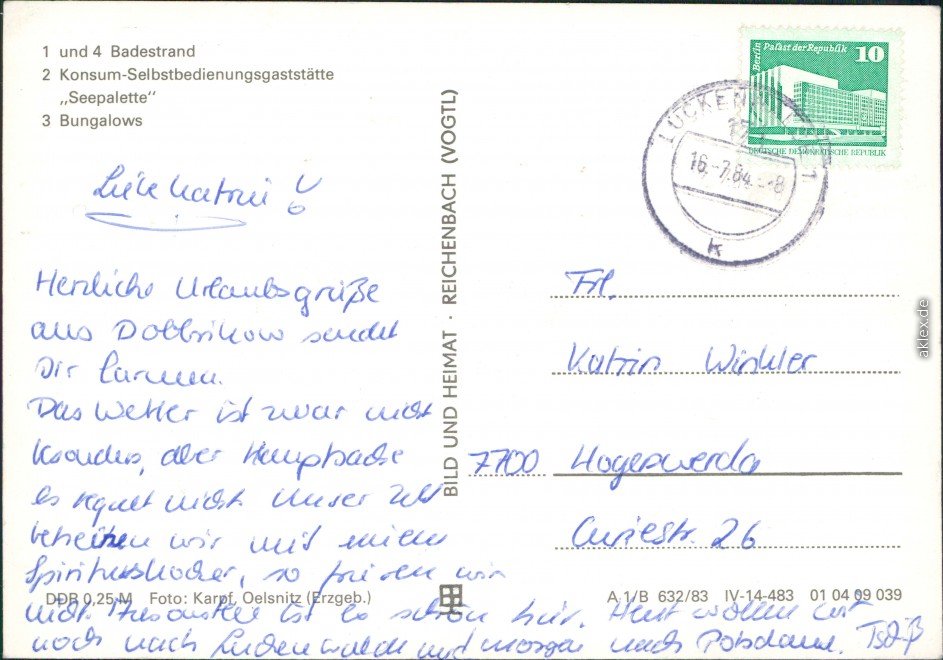 1 und 4 Badestrand
2 Konsum-Selbstbedienungsgaststätte
„Seepalette“
3 Bungalows
Liebe Katrin!
Herzliche Urlaubsgrüße
aus Dobbrikow sendet
Dir Carmen.
Das Wetter ist zwar nicht
besonders, aber Hauptsache
es regnet nicht. Unser Zelt
beheizen wir mit einem
Spirituskocher, so frieren wir
nicht. Ansonsten ist es schön hier. Heut wollen wir
noch nach Luckenwalde und morgen nach Potsdam. Tschüß
DDR 0,25 M Foto: Karpf, Oelsnitz (Erzgeb.)
BILD UND HEIMAT · REICHENBACH (VOGTL)
Berlin Palast der Republik 10
DEUTSCHE DEMOKRATISCHE REPUBLIK
LUCKENWALDE 1
16.-7.84.-8
k
Frl.
Katrin Winkler
7700 Hoyerswerda
Curiestr. 26
A 1/B 632/83 IV-14-483 01 04 09 039
aklex.de